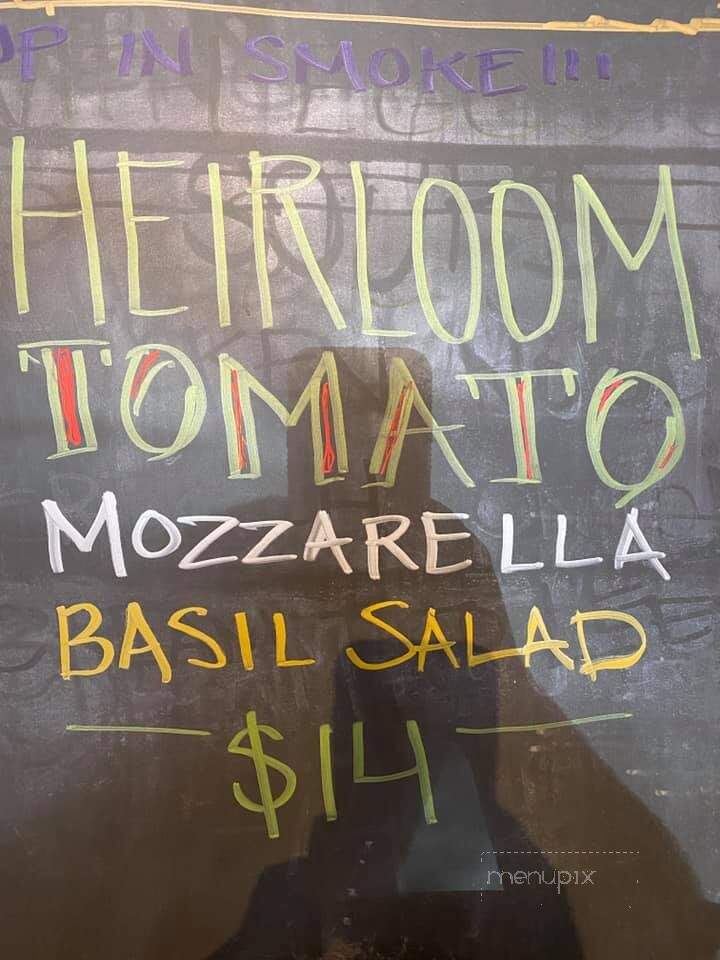 UP IN SMOKE!!!
HEIRLOOM
TOMATO
MOZZARELLA
BASIL SALAD
$14
menupix